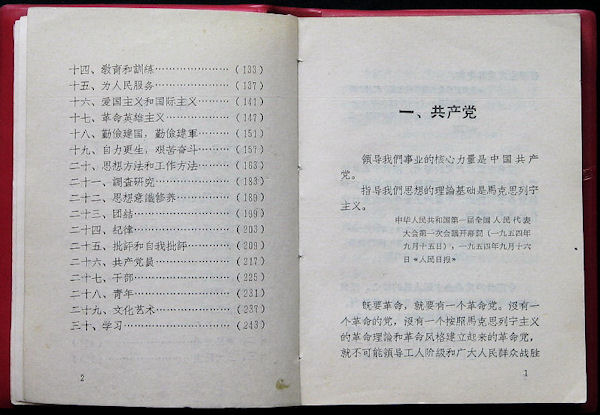 十四、教育和訓練………………(133)
十五、为人民服务………………(137)
十六、爱国主义和国际主义………(141)
十七、革命英雄主义………………(147)
十八、勤儉建国，勤儉建軍………(151)
十九、自力更生，艰苦奋斗………(157)
二十、思想方法和工作方法………(163)
二十一、調査研究………………(183)
二十二、思想意識修养……………(189)
二十三、团結……………………(199)
二十四、紀律……………………(203)
二十五、批評和自我批評…………(209)
二十六、共产党員………………(217)
二十七、干部……………………(225)
二十八、青年……………………(231)
二十九、文化艺术………………(237)
三十、学习………………………(243)
2
一、共产党
領导我們事业的核心力量是中国共产
党。
指导我們思想的理論基础是馬克思列宁
主义。
中华人民共和国第一届全国人民代表
大会第一次会議开幕詞(一九五四年
九月十五日)，一九五四年九月十六
日《人民日报》
既要革命，就要有一个革命党。沒有一
个革命的党，沒有一个按照馬克思列宁主义
的革命理論和革命风格建立起来的革命党，
就不可能領导工人阶級和广大人民群众战胜
1